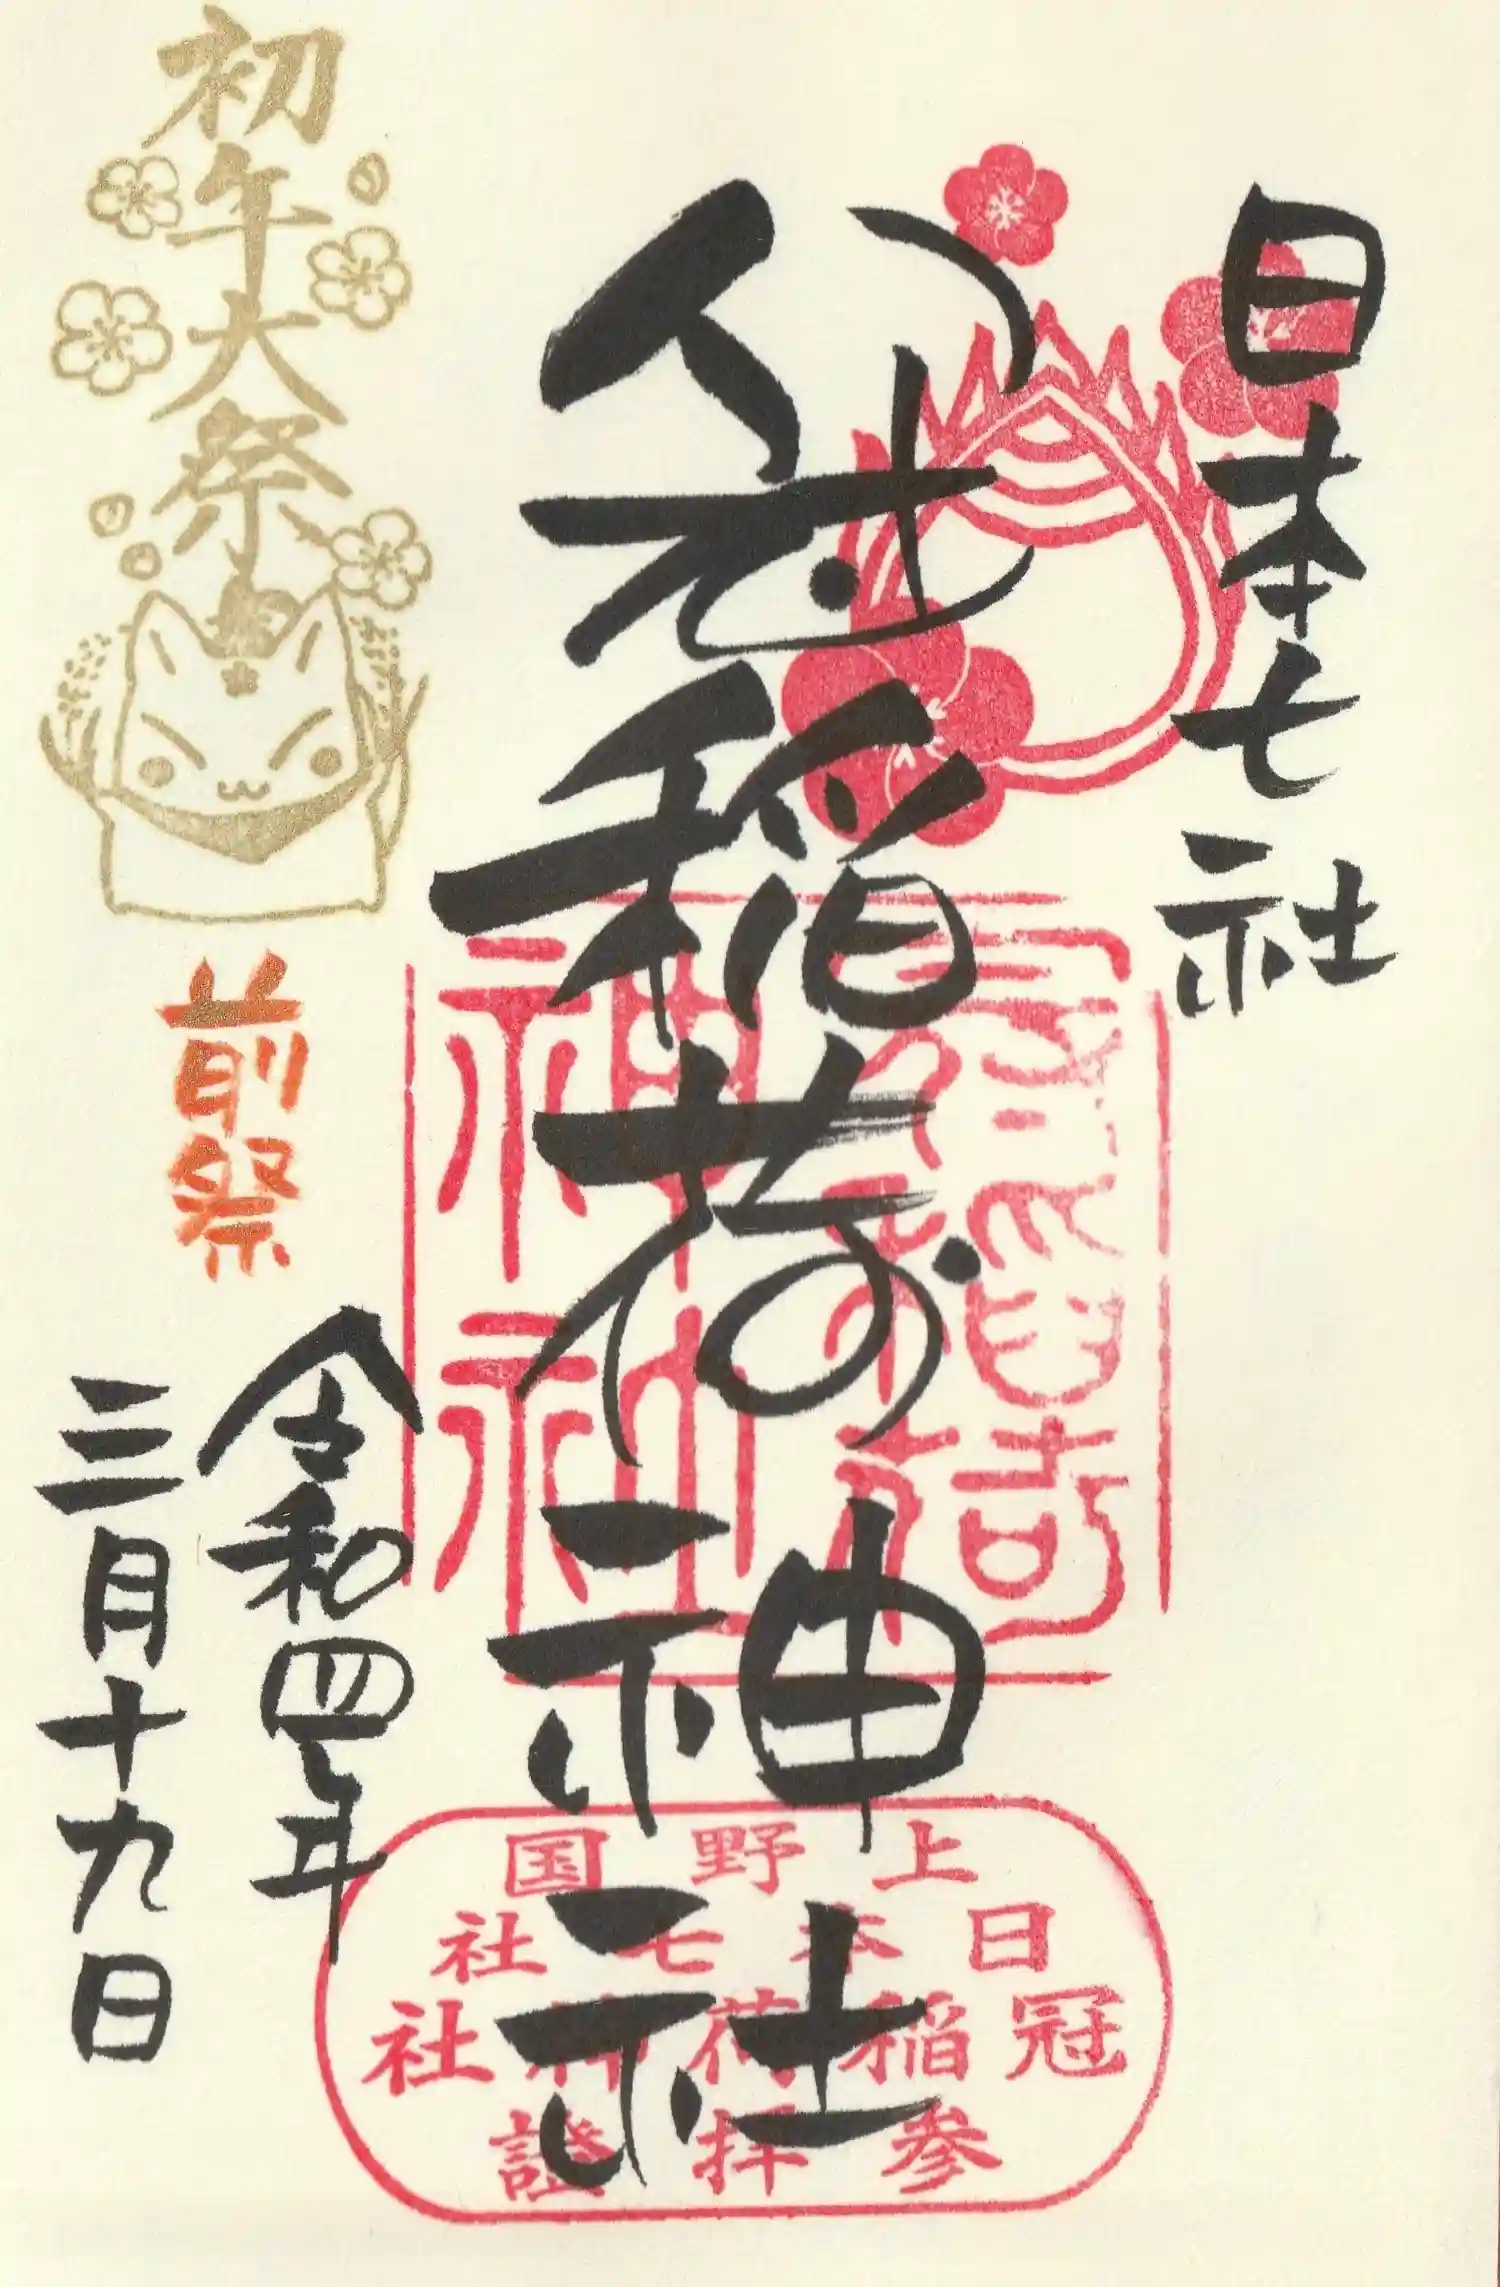 日本七社
冠稲荷神社
初午大祭
前祭
令和四年
三月十九日
冠稲荷
神社
上野国
日本七社
冠稲荷神社
参拝證